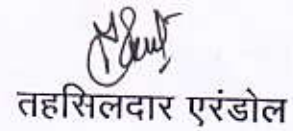 तहसिलदार एरंडोल